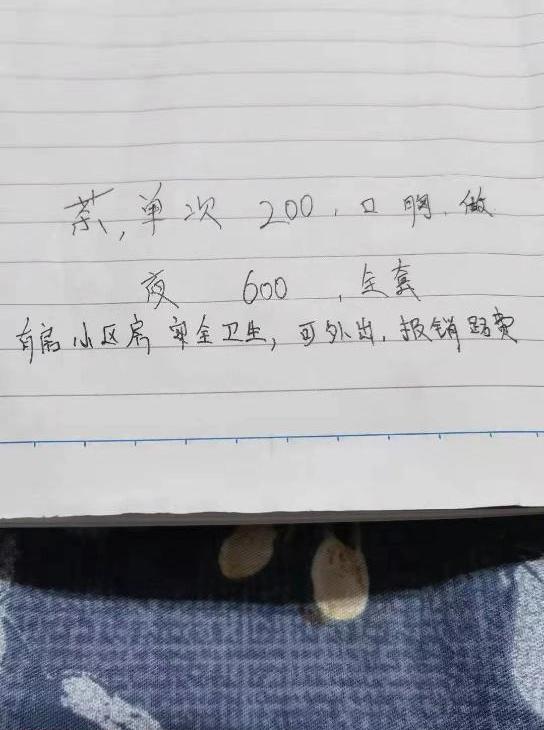 茶,单次 200,口 胸、做
夜 600 ,全套
有房 小区房 安全卫生,可外出,报销路费